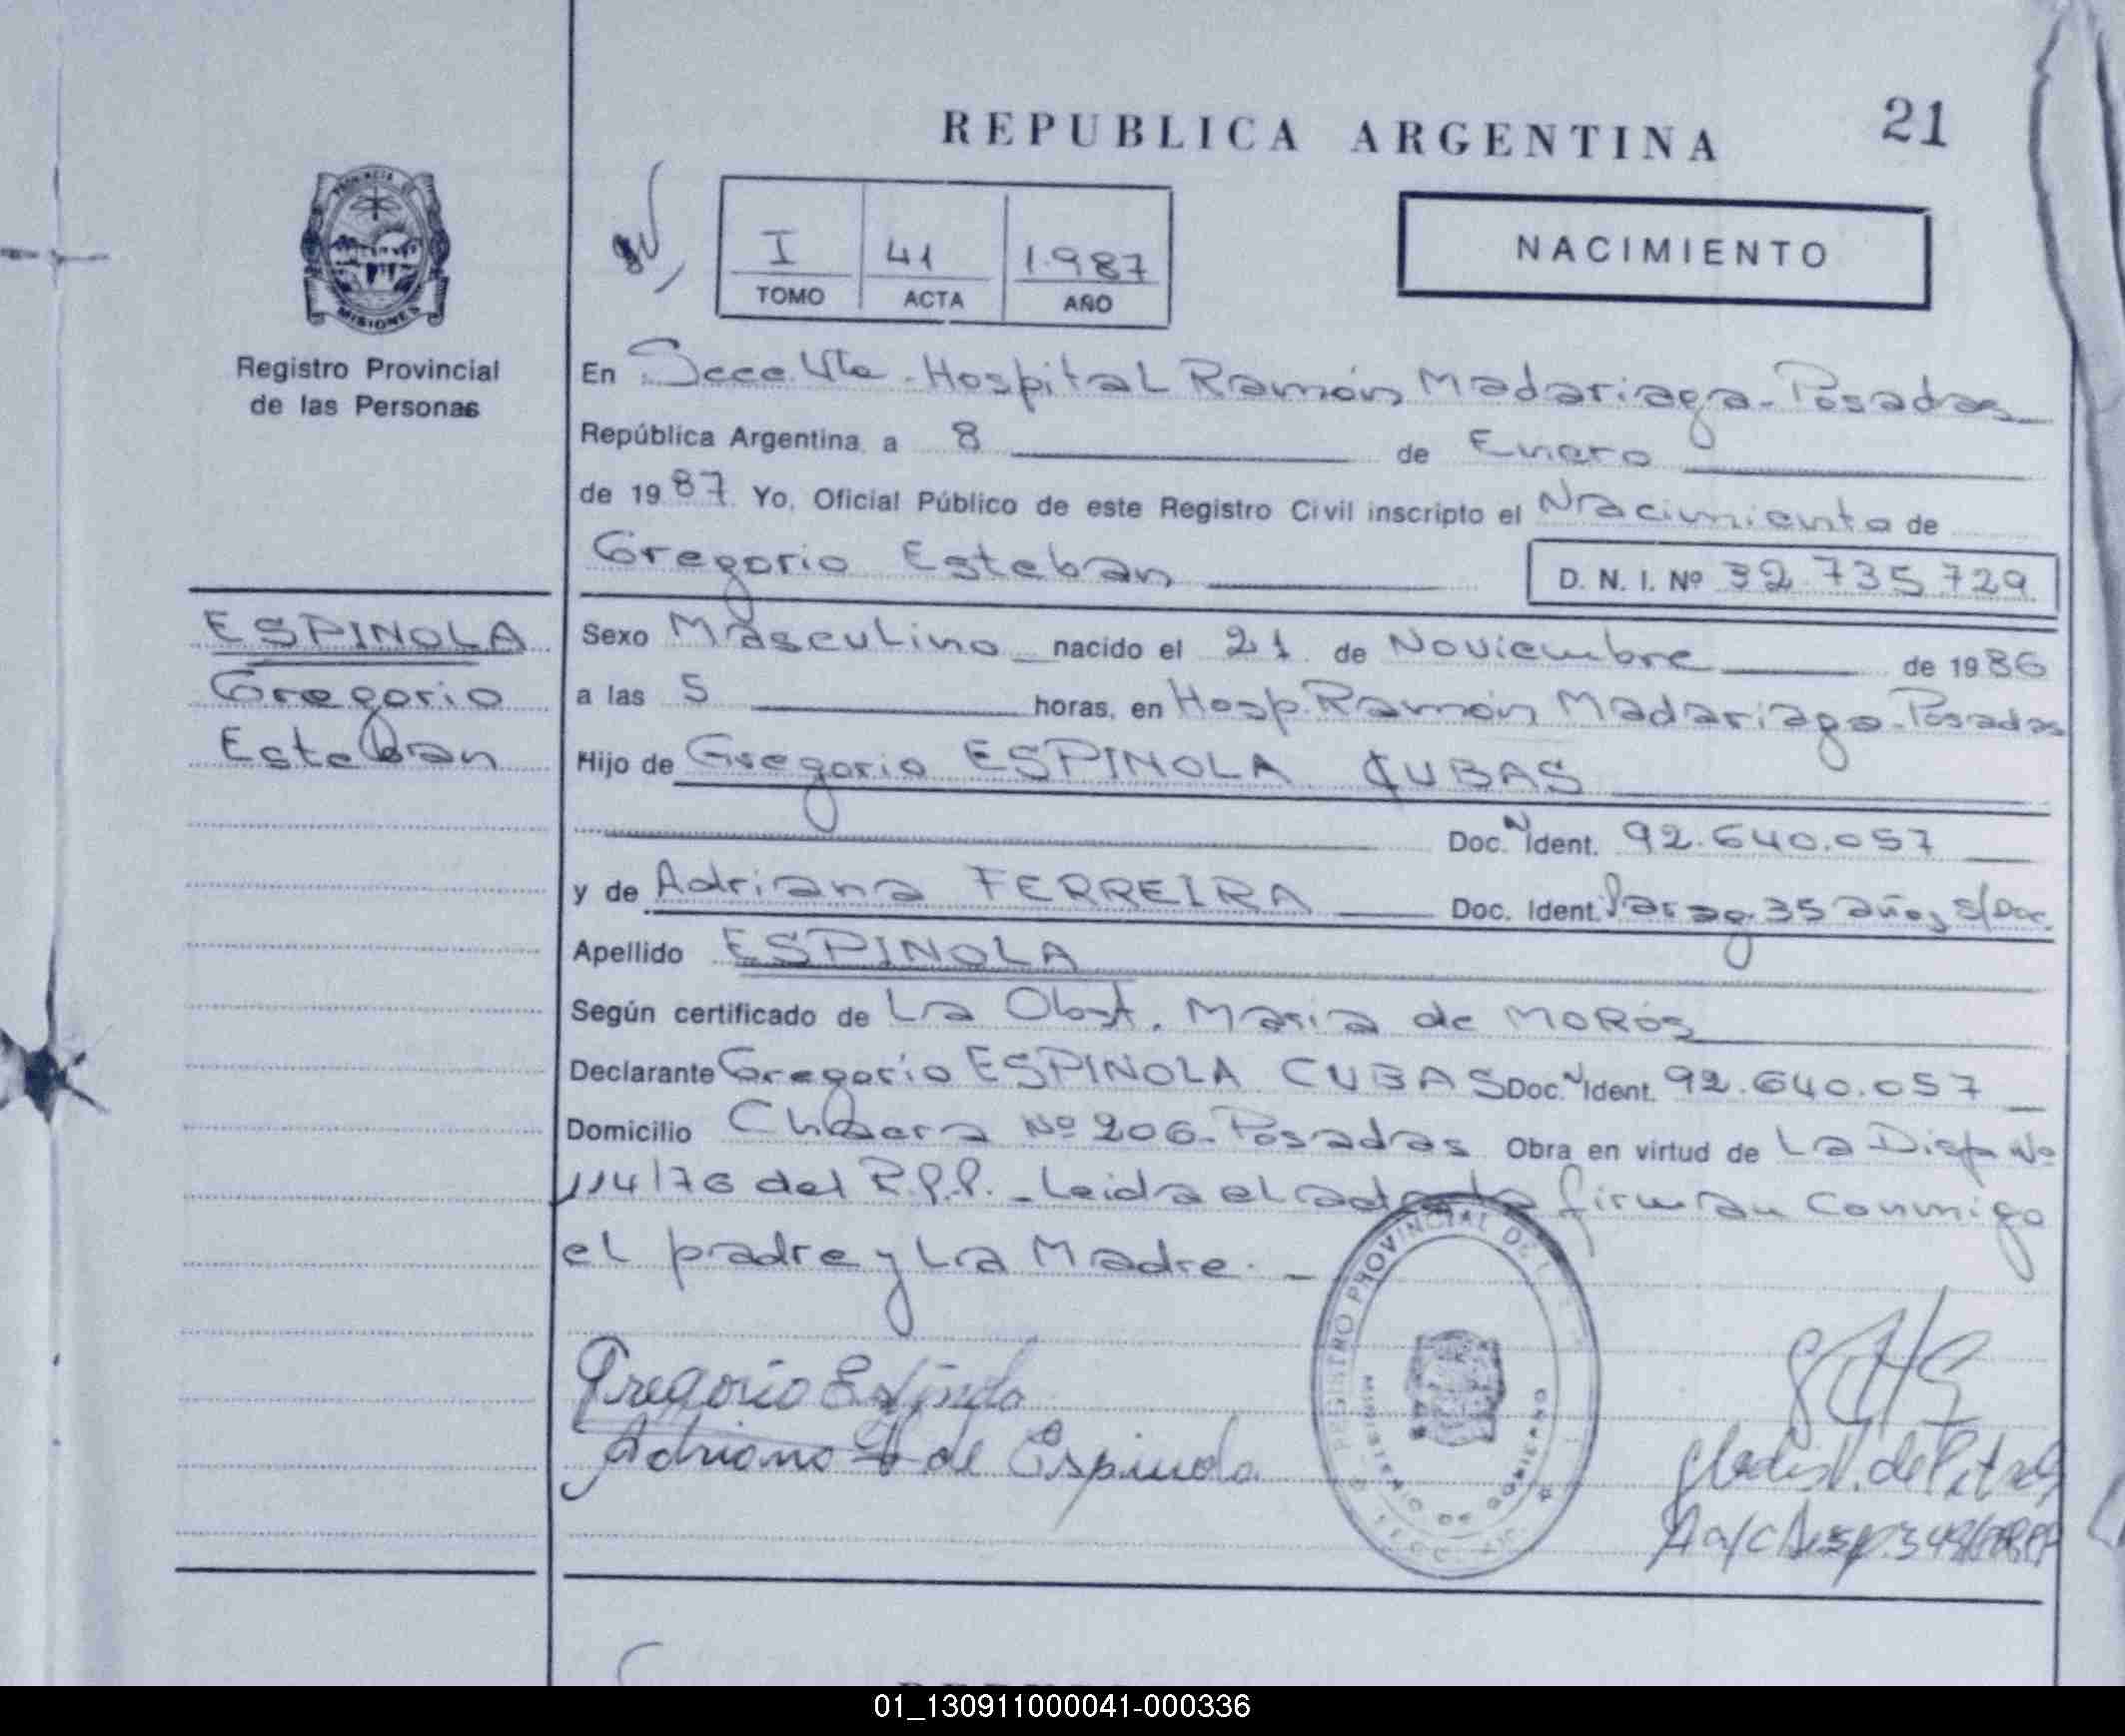 REPUBLICA ARGENTINA
21
PROVINCIA DE
MISIONES
Registro Provincial
de las Personas
I 41 1.987
TOMO ACTA AÑO
NACIMIENTO
En Secc. Vta - Hospital Ramón Madariaga - Posadas
República Argentina, a 8 de Enero
de 1987 Yo, Oficial Público de este Registro Civil inscripto el Nacimiento de
Gregorio Esteban
D. N. I. Nº 32.735.729
ESPINOLA
Gregorio
Esteban
Sexo Masculino nacido el 21 de Noviembre de 1986
a las 5 horas, en Hosp. Ramón Madariaga - Posadas
Hijo de Gregorio ESPINOLA CUBAS
Doc. N Ident. 92.640.057
y de Adriana FERREIRA Doc. Ident. Parag. 35 años s/Doc.
Apellido ESPINOLA
Según certificado de La Obst. Maria de MORÓS
Declarante Gregorio ESPINOLA CUBAS Doc. N Ident. 92.640.057
Domicilio Chacra Nº 206 - Posadas Obra en virtud de La Disp Nº
114/76 del R.P.P. - Leida el acta la firman conmigo
el padre y La Madre. -
Gregorio Espinola
Adriana F de Espinola
REGISTRO PROVINCIAL DE
MINISTERIO DE GOBIERNO
de
A a/c Disp. 
01_130911000041-000336